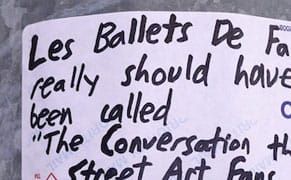 Les Ballets De Fa
really should have
been called
"The Conversation th
Street Art Fans